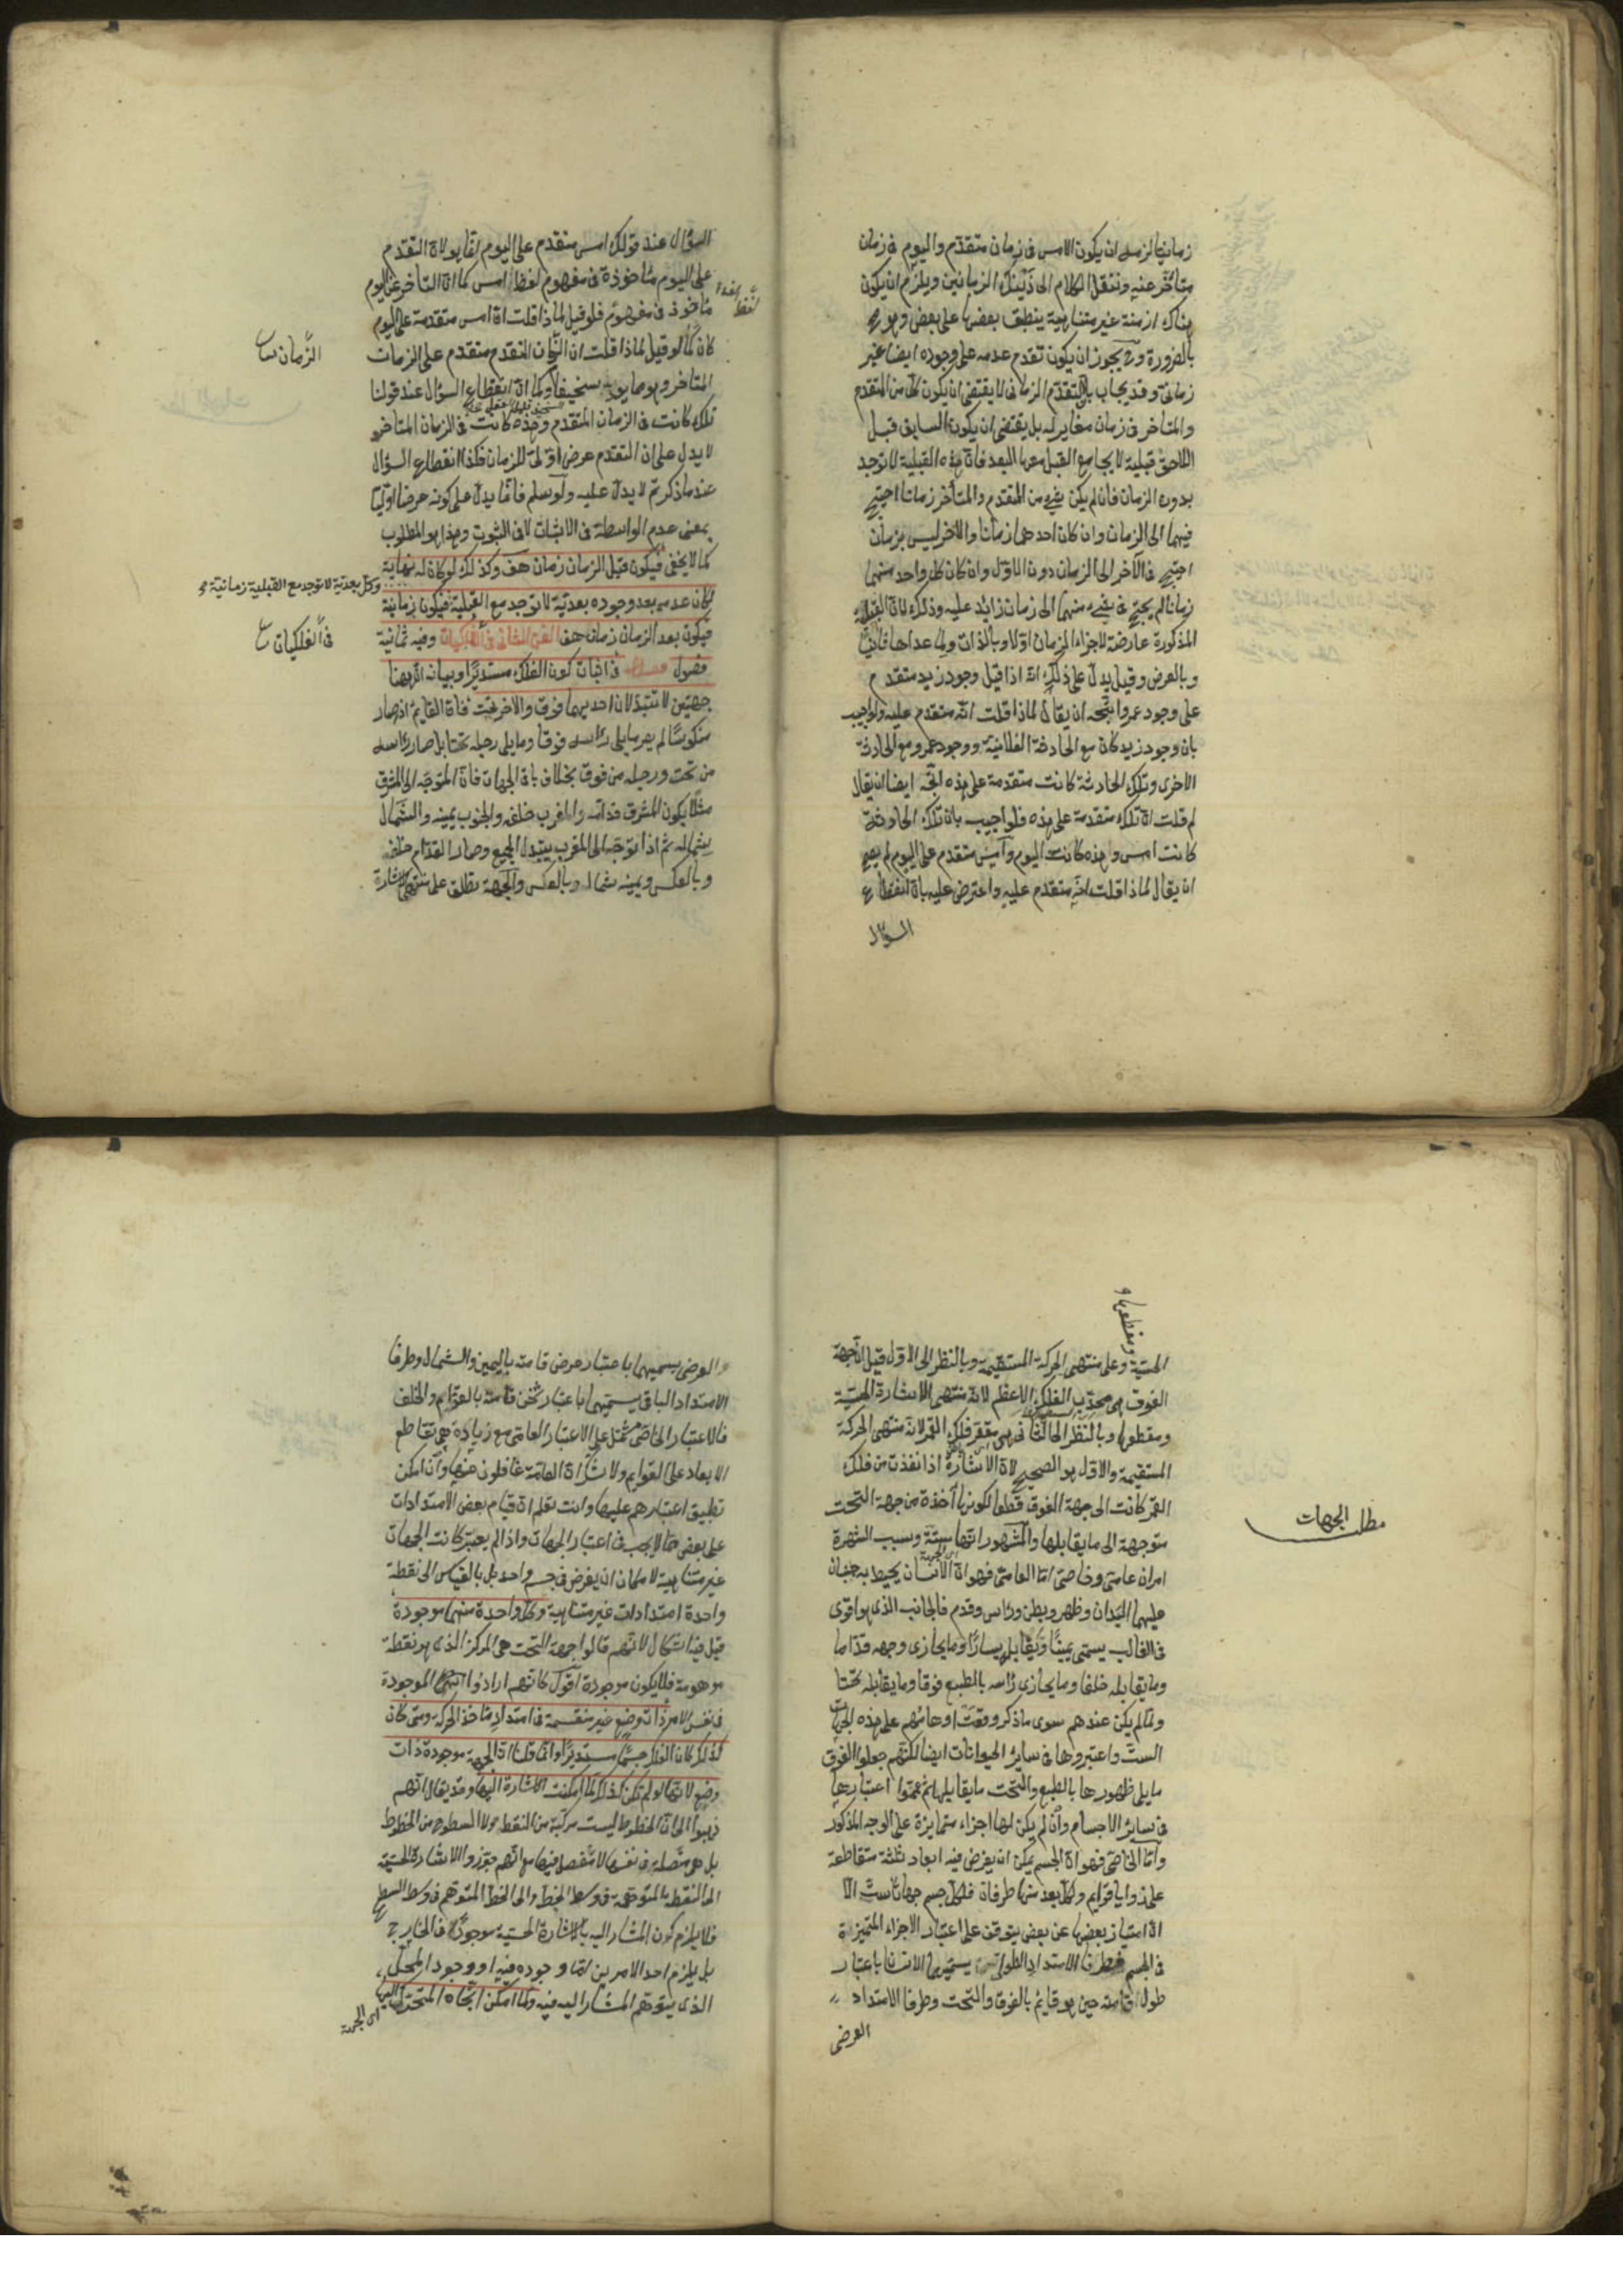 زمانيا لزم ان يكون الامس فى زمان متقدم واليوم فى زمان
متأخر عنه وننقل الكلام الى ذينك الزمانين ويلزم ان يكون
هناك ازمنة غير متناهية ينطبق بعضها على بعض وهو مح
بالضرورة وح يجوز ان يكون تقدم عدمه على وجوده ايضا غير
زمانى وقد يجاب بان التقدم الزمانى لا يقتضى ان يكون كل من المتقدم
والمتاخر فى زمان مغاير له بل يقتضى ان يكون السابق قبل
اللاحق قبلية لا يجامع القبل معها البعد فان هذه القبلية لا توجد
بدون الزمان فان لم يكن شئ من المتقدم والمتأخر زمانا احتيج
فيهما الى الزمان وان كان احدهما زمانا والاخر ليس بزمان
احتيج فى الآخر الى الزمان دون الاول وان كان كل واحد منهما
زمانا لم يحتج فى شئ منهما الى زمان زائد عليه وذلك لان القبلية
المذكورة عارضة لاجزاء الزمان اولا وبالذات ولما عداها ثانيا
وبالعرض وقيل يدل على ذلك انه اذا قيل وجود زيد متقدم
على وجود عمرو اتجه ان يقال لماذا قلت انه متقدم عليه ولو اجيب
بان وجود زيد كان مع الحادثة الفلانية ووجود عمرو مع الحادثة
الاخرى وتلك الحادثة كانت متقدمة على هذه اتجه ايضا ان يقال
لم قلت ان تلك متقدمة على هذه فلو اجيب بان تلك الحادثة
كانت امس وهذه كانت اليوم وامس متقدم على اليوم لم يصح
ان يقال لماذا قلت انه متقدم عليه واعترض عليه بان انقطاع
السؤال
السؤال عند قولك امس متقدم على اليوم انما هو لان التقدم
على اليوم مأخوذة فى مفهوم لفظ امس كما ان التاخر عن اليوم
مأخوذ فى مفهوم فلو قيل لماذا قلت ان امس متقدمة على اليوم
لفظ الغد
كان كما لو قيل لماذا قلت ان الزمان المتقدم متقدم على الزمان
الزمان
المتاخر وهو مما يعد سخيفا وكما ان انقطاع السؤال عند قولنا
تلك كانت فى الزمان المتقدم وهذه كانت فى الزمان المتاخر
لا يدل على ان التقدم عرض اولى للزمان فكذا انقطاع السؤال
عند ما ذكرتم لا يدل عليه ولو سلم فانما يدل على كونه عرضا اوليا
بمعنى عدم الواسطة فى الاثبات لا فى الثبوت وهذا هو المطلوب
كما لا يخفى فيكون قبل الزمان زمان هف وكذلك لو كان له نهاية
وكل بعدية لا توجد مع القبلية زمانية
لكان عدمه بعد وجوده بعدية لا توجد مع القبلية فيكون زمانية
فيكون بعد الزمان زمان هف الفن الثانى فى الفلكيات وفيه ثمانية
فى الفلكيات
فصول فصل فى اثبات كون الفلك مستديرا وبيانه ان ههنا
جهتين لا تتبدلان احديهما فوق والاخرى تحت فان القايم اذا صار
منكوسا لم يصر ما يلى رأسه فوقا وما يلى رجله تحتا بل صار رأسه
من تحت ورجله من فوق بخلاف باقى الجهات فان المتوجه الى المشرق
مثلا يكون المشرق قدامه والمغرب خلفه والجنوب يمينه والشمال
شماله ثم اذا توجه الى المغرب يتبدل الجميع وصار القدام خلفه
وبالعكس ويمينه شماله وبالعكس والجهة تطلق على منتهى الاشارة
ومقطعها و
الحسية وعلى منتهى الحركة المستقيمة وبالنظر الى الاول قيل ان جهة
الفوق هى محدب الفلك الاعظم لانه منتهى الاشارة الحسية
ومقطعها وبالنظر الى الثانى هى مقعر فلك القمر لانه منتهى الحركة
المستقيمة والاول هو الصحيح لان الاشارة اذا نفذت من فلك
القمر كانت الى جهة الفوق قطعا لكونها آخذة من جهة التحت
متوجهة الى ما يقابلها والمشهور انها ستة وسبب الشهرة
مطلب الجهات
امران عامى وخاصى اما العامى فهو ان الانسان يحيط به جنبان
عليهما اليدان وظهر وبطن ورأس وقدم فالجانب الذى هو اقوى
فى الغالب يسمى يمينا وما يقابله يسارا وما يحاذى وجهه قداما
وما يقابله خلفا وما يحاذى رأسه بالطبع فوقا وما يقابله تحتا
ولما لم يكن عندهم سوى ما ذكر وقعت اوهامهم على هذه الجهات
الست واعتبروها فى ساير الحيوانات ايضا لكنهم جعلوا الفوق
ما يلى ظهورها بالطبع والتحت ما يقابلها ثم عمموا اعتبارها
فى ساير الاجسام وان لم يكن لها اجزاء متمايزة على الوجه المذكور
واما الخاصى فهو ان الجسم يمكن ان يفرض فيه ابعاد ثلثة متقاطعة
على زوايا قوايم ولكل بعد منها طرفان فلكل جسم جهات ست الا
ان امتياز بعضها عن بعض يتوقف على اعتبار الاجزاء المتميزة
فى الجسم فطرفا الامتداد الطولى يسميهما الانسان باعتبار
طول قامته حين هو قايم بالفوق والتحت وطرفا الامتداد
العرضى
والعرضى يسميهما باعتبار عرض قامته باليمين والشمال وطرفا
الامتداد الباقى يسميهما باعتبار ثخن قامته بالقدام والخلف
فالاعتبار الخاصى مشتمل على الاعتبار العامى مع زيادة هى تقاطع
الابعاد على القوايم ولا شك ان العامة غافلون عنها وان امكن
تطبيق اعتبارهم عليها وانت تعلم ان قيام بعض الامتدادات
على بعض مما لا يجب فى اعتبار الجهات واذا لم يعتبر كانت الجهات
غير متناهية لامكان ان يفرض فى جسم واحد بل بالقياس الى نقطة
واحدة امتدادات غير متناهية وكل واحدة منهما موجودة
قيل فيه اشكال لانهم قالوا جهة التحت هى المركز الذى هو نقطة
موهومة فلا يكون موجودة اقول كانهم ارادوا انها الموجودة
فى نفس الامر ذات وضع غير منقسمة فى امتداد مأخذ الحركة ومتى كان
كذلك كان الفلك جسما مستديرا وانما قلنا ان الجهة موجودة ذات
وضع لانها لو لم تكن كذلك لما امكنت الاشارة اليها وقد يقال انهم
ذهبوا الى ان الخطوط ليست مركبة من النقط ولا السطوح من الخطوط
بل هى متصلة فى نفسها لا مفصل فيها مع انهم جوزوا الاشارة الحسية
الى النقطة المتوهمة فى وسط الخط والى الخط المتوهم فى وسط السطح
فلا يلزم كون المشار اليه بالاشارة الحسية موجودا فى الخارج
بل يلزم احد الامرين اما وجوده فيه او وجود المحل
الذى يتوهم المشار اليه فيه ولما امكن اتجاه المتحرك اليها
اى الجهة